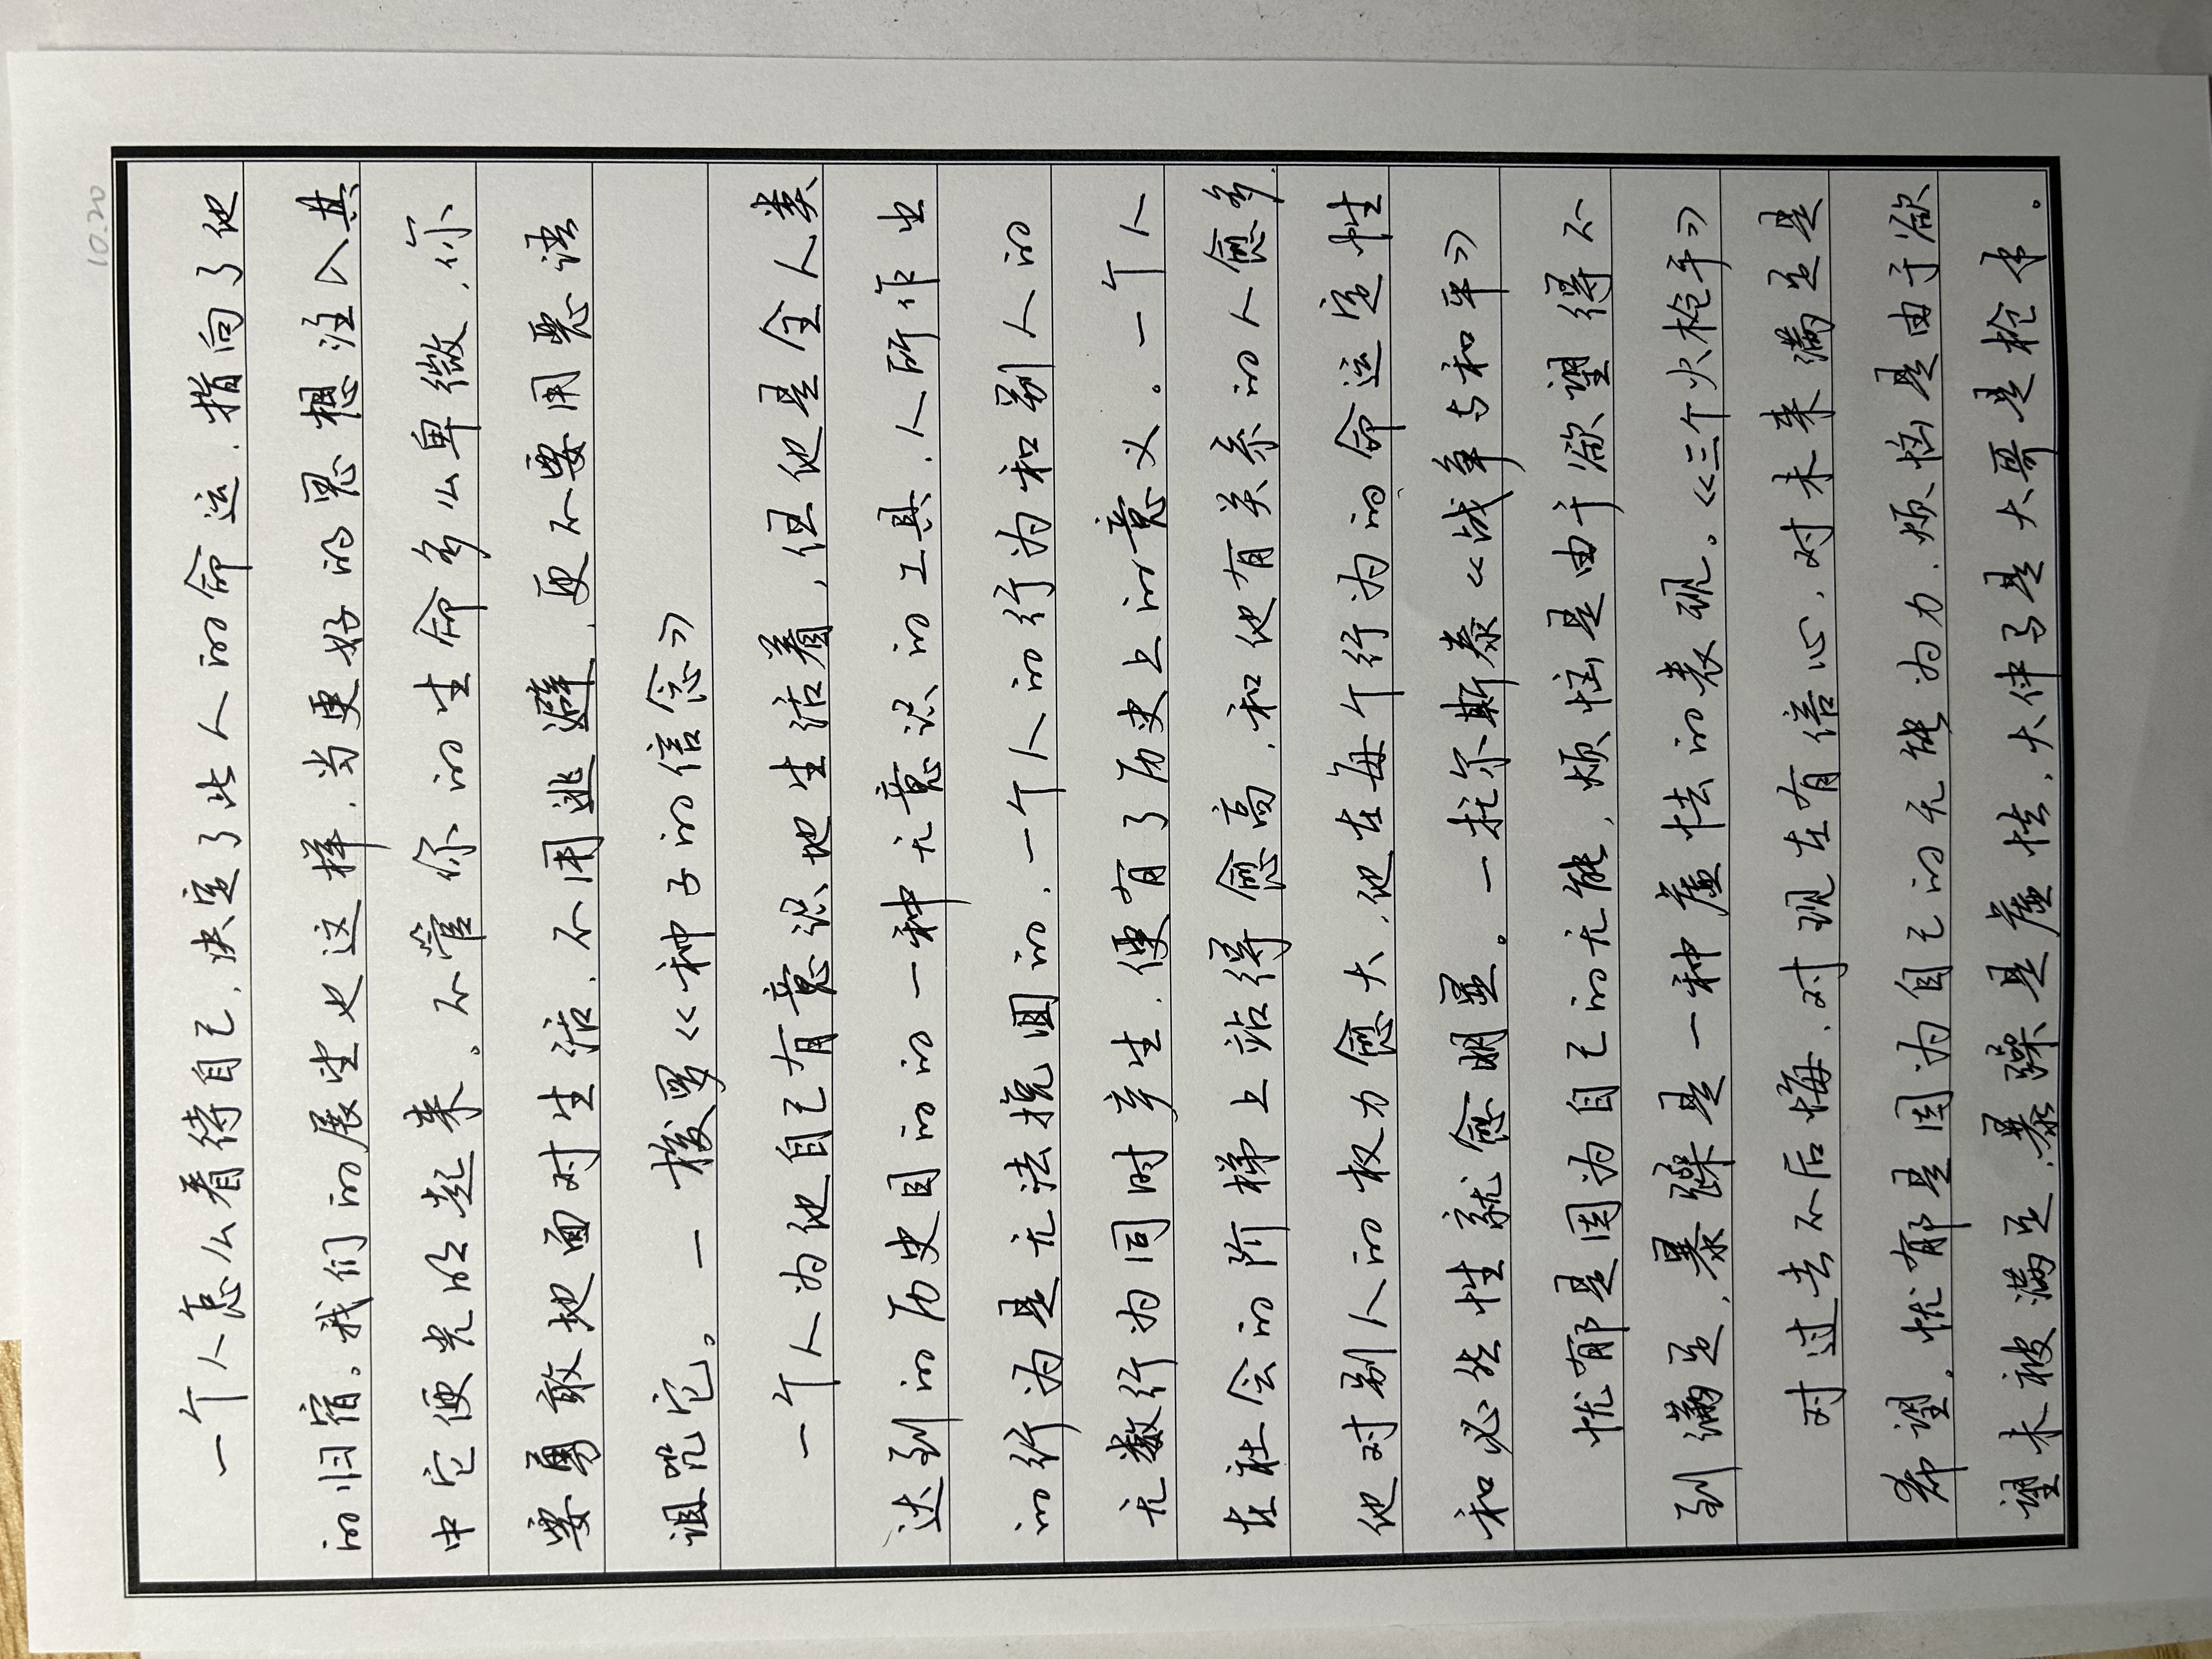 10.20
一个人怎么看待自己,决定了此人的命运,指向了他
的归宿。我们的展望也这样,当更好的思想注入其
中它便光明起来。不管你的生命多么卑微,你
要勇敢地面对生活,不用逃避,更不要用恶语
诅咒它。— 梭罗《种子的信念》
一个人为他自己有意识地生活着,但他是全人类
达到的历史目的的一种无意识的工具,人所作出
的行为是无法挽回的,一个人的行为和别人的
无数行为同时产生,便有了历史上的意义。一个人
在社会的阶梯上站得愈高,和他有关系的人愈多,
他对别人的权力愈大,他在每个行为的命运定性
和必然性就愈明显。—托尔斯泰《战争与和平》
忧郁是因为自己的无能,烦恼是由于欲望得不
到满足,暴躁是一种虚怯的表现。《三个火枪手》
对过去不后悔,对现在有信心,对未来满足是
希望。忧郁是因为自己的无能为力,烦恼是由于欲
望未被满足,暴躁是虚怯,大仲马是大哥是枪手。